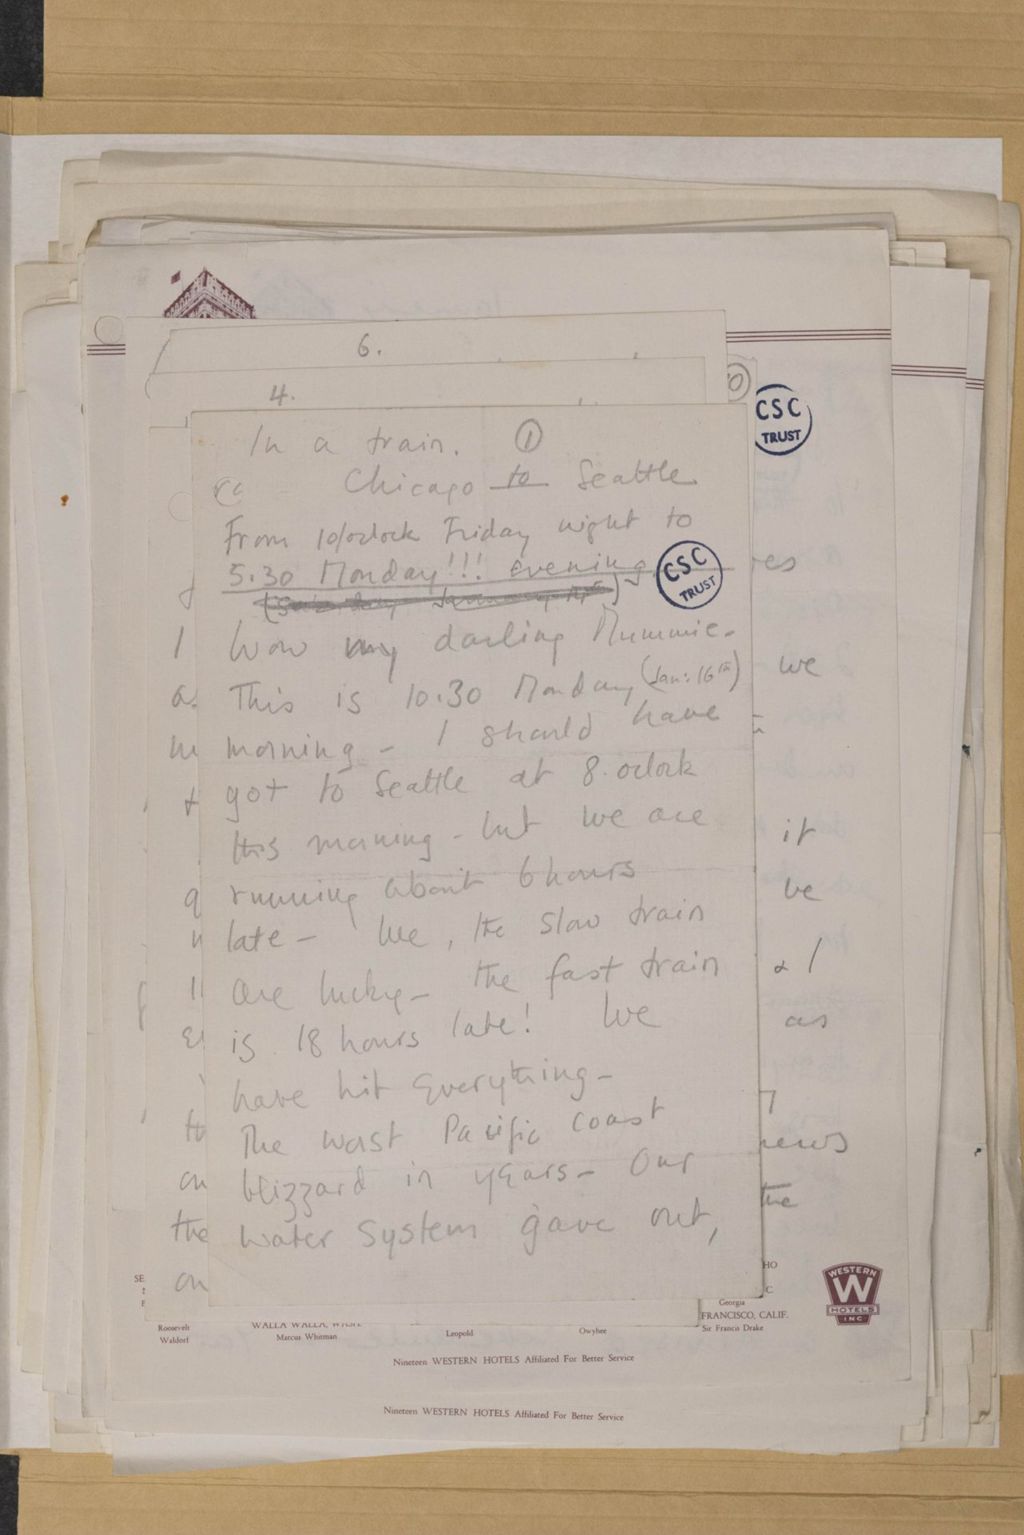 6.
4.
In a train. 1
Chicago to Seattle
From 10/oclock Friday night to
5.30 Monday!!! evening
CSC
TRUST
CSC
TRUST
Wow my darling Mummie.
This is 10.30 Monday (Jan: 16th)
morning - I should have
got to Seattle at 8.oclock
this morning - but we are
running about 6 hours
late - We, the slow train
are lucky - the fast train
is 18 hours late! We
have hit Everything -
The worst Pacific coast
blizzard in years - Our
water system gave out,
we
it
be
& I
as
news
the
the
on
Georgia
FRANCISCO, CALIF.
Sir Francis Drake
Roosevelt
Waldorf
WALLA WALLA, WASH.
Marcus Whitman
Leopold
Owyhee
WESTERN
W
HOTELS
INC
Nineteen WESTERN HOTELS Affiliated For Better Service
Nineteen WESTERN HOTELS Affiliated For Better Service